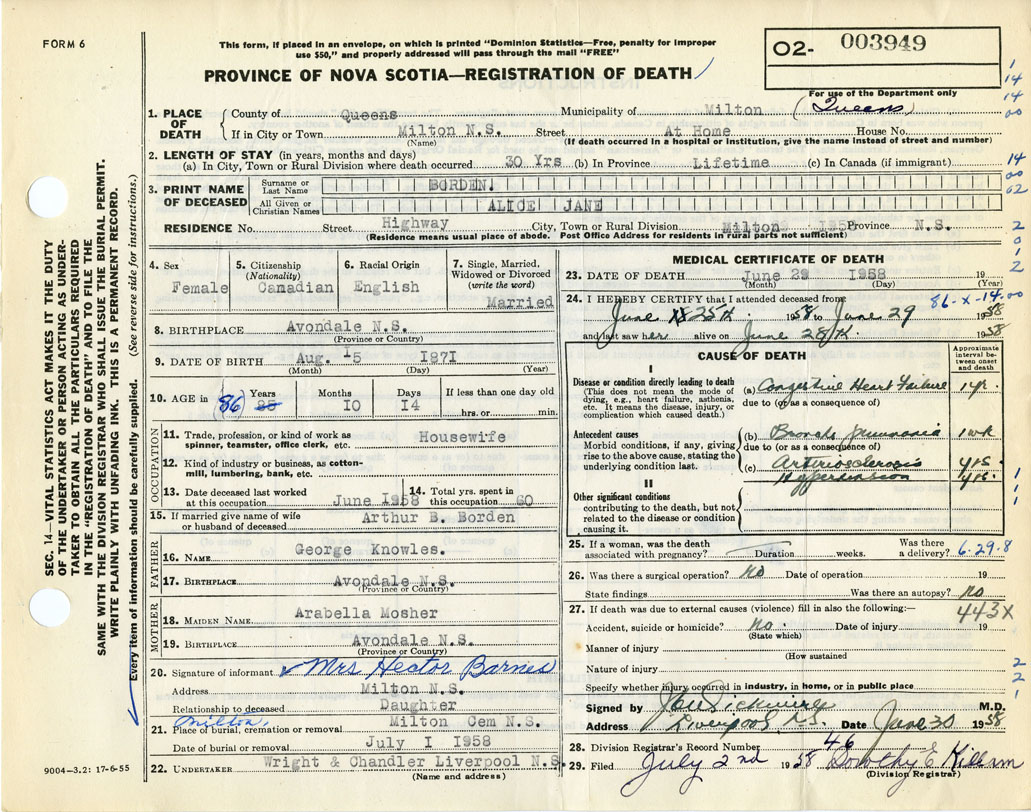 FORM 6
This form, if placed in an envelope, on which is printed "Dominion Statistics—Free, penalty for improper
use $50," and properly addressed will pass through the mail "FREE"
PROVINCE OF NOVA SCOTIA—REGISTRATION OF DEATH
O2- 003949
For use of the Department only
1. PLACE OF DEATH
County of Queens Municipality of Milton (Queens)
If in City or Town Milton N.S. Street At Home House No.
(Name) (If death occurred in a hospital or institution, give the name instead of street and number)
2. LENGTH OF STAY (in years, months and days)
(a) In City, Town or Rural Division where death occurred 30 Yrs (b) In Province Lifetime (c) In Canada (if immigrant)
3. PRINT NAME OF DECEASED
Surname or Last Name BORDEN.
All Given or Christian Names ALICE JANE
RESIDENCE No. Street Highway City, Town or Rural Division Milton Province N.S.
(Residence means usual place of abode. Post Office Address for residents in rural parts not sufficient)
4. Sex Female
5. Citizenship (Nationality) Canadian
6. Racial Origin English
7. Single, Married, Widowed or Divorced (write the word) Married
8. BIRTHPLACE Avondale N.S.
(Province or Country)
9. DATE OF BIRTH Aug. 15 1871
(Month) (Day) (Year)
10. AGE in Years (86) Months 10 Days 14 If less than one day old hrs. or min.
OCCUPATION
11. Trade, profession, or kind of work as
spinner, teamster, office clerk, etc. Housewife
12. Kind of industry or business, as cotton-
mill, lumbering, bank, etc.
13. Date deceased last worked
at this occupation June 1958
14. Total yrs. spent in
this occupation 60
15. If married give name of wife
or husband of deceased Arthur B. Borden
FATHER
16. NAME George Knowles.
17. BIRTHPLACE Avondale N.S.
(Province or Country)
MOTHER
18. MAIDEN NAME Arabella Mosher
19. BIRTHPLACE Avondale N.S.
(Province or Country)
20. Signature of informant Mrs Hector Barnes
Address Milton N.S.
Relationship to deceased Daughter
Milton,
21. Place of burial, cremation or removal Milton Cem N.S.
Date of burial or removal July I 1958
22. UNDERTAKER Wright & Chandler Liverpool N.S
(Name and address)
9004—3.2: 17-6-55
SEC. 14—VITAL STATISTICS ACT MAKES IT THE DUTY
OF THE UNDERTAKER OR PERSON ACTING AS UNDER-
TAKER TO OBTAIN ALL THE PARTICULARS REQUIRED
IN THE "REGISTRATION OF DEATH" AND TO FILE THE
SAME WITH THE DIVISION REGISTRAR WHO SHALL ISSUE THE BURIAL PERMIT.
WRITE PLAINLY WITH UNFADING INK. THIS IS A PERMANENT RECORD.
Every item of information should be carefully supplied. (See reverse side for instructions.)
MEDICAL CERTIFICATE OF DEATH
23. DATE OF DEATH June 29 1958 19
(Month) (Day) (Year)
24. I HEREBY CERTIFY that I attended deceased from 86-X-14.00
June 25th 1958 to June 29 1958
and last saw her alive on June 28th 1958
CAUSE OF DEATH
Approximate interval between onset and death
I
Disease or condition directly leading to death
(This does not mean the mode of
dying, e.g., heart failure, asthenia,
etc. It means the disease, injury, or
complication which caused death.)
(a) Congestive Heart Failure 1 yr.
due to (or as a consequence of)
Antecedent causes
Morbid conditions, if any, giving
rise to the above cause, stating the
underlying condition last.
(b) Broncho Pneumonia 1 wk
due to (or as a consequence of)
(c) Arteriosclerosis yrs.
Hypertension yrs.
II
Other significant conditions
contributing to the death, but not
related to the disease or condition
causing it.
25. If a woman, was the death
associated with pregnancy? Duration weeks. Was there
a delivery? 6.29.8
26. Was there a surgical operation? No Date of operation 19
State findings Was there an autopsy? No
27. If death was due to external causes (violence) fill in also the following:— 443X
Accident, suicide or homicide? No Date of injury 19
(State which)
Manner of injury
(How sustained
Nature of injury
Specify whether injury occurred in industry, in home, or in public place
Signed by M.D.
Address Liverpool N.S. Date June 30 1958
28. Division Registrar's Record Number 46
29. Filed July 2nd 1958 Dorothy E Killam
(Division Registrar)
1
14
14
00
14
00
02
2
0
1
2
1
1
1
2
2
1